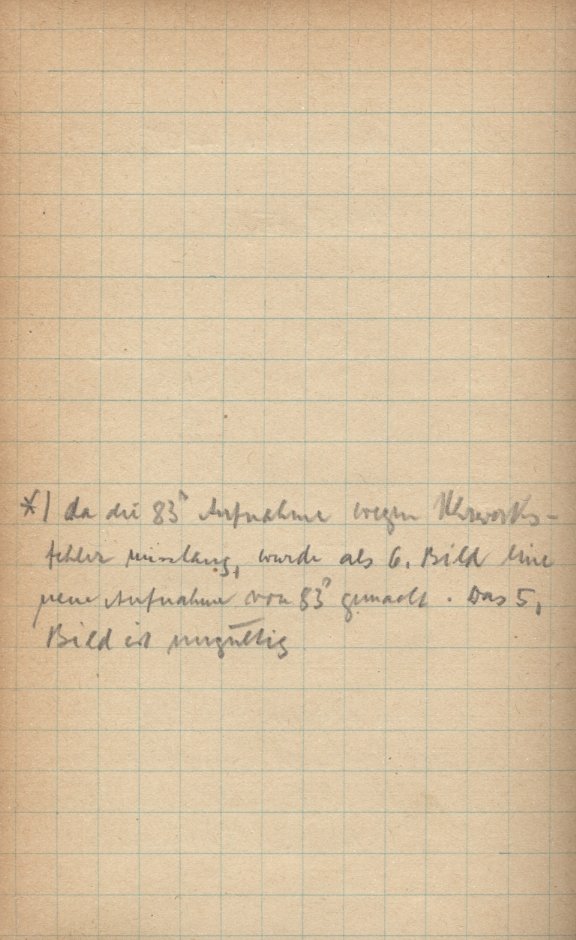 *) da die 83° Aufnahme wegen Uhrwerks-
fehler misslang, wurde als 6. Bild eine
neue Aufnahme von 83° gemacht. Das 5.
Bild ist ungültig